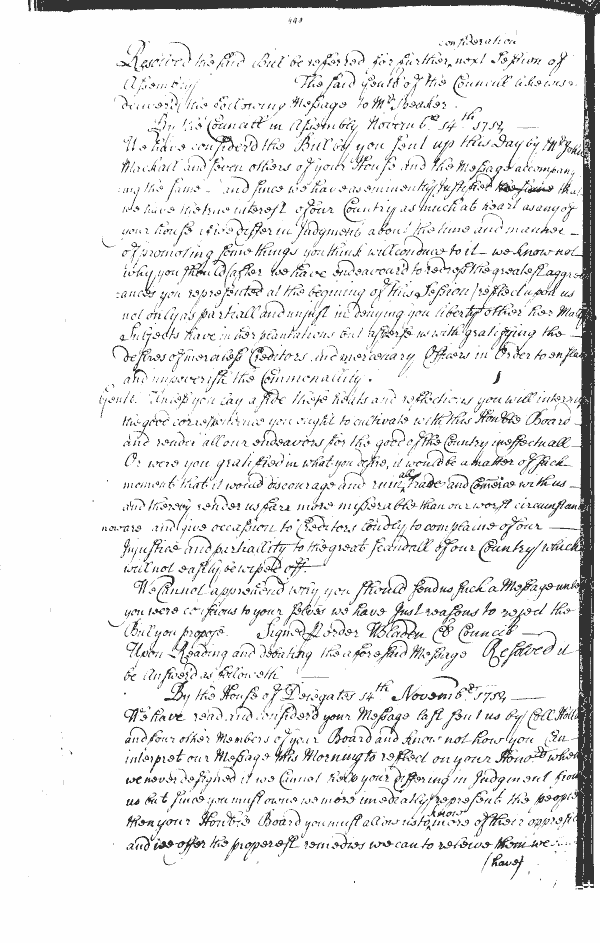 consideration
Resolved the said Bill be referred for further next Session of
Assembly The said Gents of the Councill likewise
delivered the following Message to Mr Speaker.
By the Councill in Assembly November 14th
We have considered the Bill you sent up this Day by Mr John
Mackall and seven others of your House and the Message accompany
ing the same and since we have as eminently Justified that
we have the true interest of our Country as much at heart as any of
your house if we differ in Judgment about the time and manner
of promoting some things you think will conduce to it we know not
why you should (after we have endeavourd to redress the greatest aggrev
ances you represented at the begining of this Session) reflect upon us
not only as partiall and unjust in denying you liberty other her Maj
Subjects have in her plantations but asperse us with gratifying the
desires of merciless Creditors and mercenary Officers in Order to enslave
and impoverish the Commonallity.
Gents. Unless you lay aside these heats and reflections you will interrup
the good correspondence you ought to cultivate with this Honble Board
and render all our endeavors for the good of the Country ineffectuall
Or were you gratified in what you desire, it would be a matter of such
moment that it would discourage and ruin all Trade and Comerce with us
and thereby render us farr more miserable than our worst circumstances
now are and give occassion to Creditors loudly to complaine of our
Injustice and partiallity to the great scandall of our Country which
will not easily be wiped off.
We Cannot apprehend why you should send us such a Message unless
you were consious to your selves we have Just reasons to reject the
Bill you propose. Signed p order W Bladen Cl Councill
Upon Reading and debating the aforesaid Message Resolved it
be Answerd as followeth
By the House of Delegates 14th Novembr
We have read and considerd your Message last sent us by Coll
and four other Members of your Board and know not how you can
interpret our Message this Morning to reflect on your Honrs when
we never designed it we Cannot help your differing in Judgment from
us but since you must owne we more imediatly represent the people
then your Honble Board you must allow us to know more of their oppressi
and if we offer the properest remedies we can to releive them we
(have)